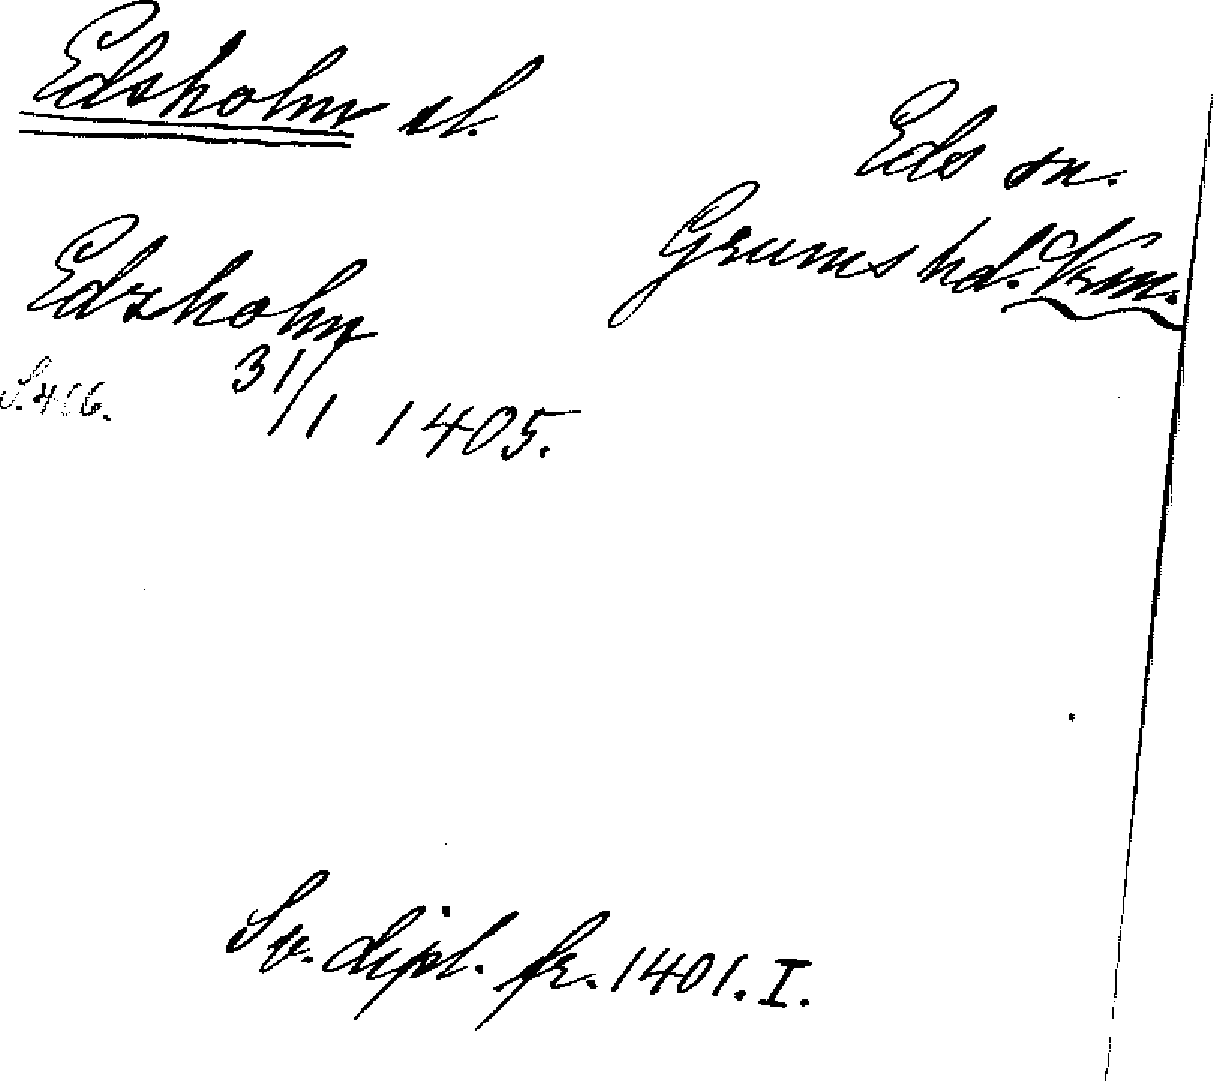 Edsholm sl.
Eds sn.
Grums hd. Vrm.
Edzholm
31/1 1405.
S. 416.
Sv. dipl. fr. 1401. I.